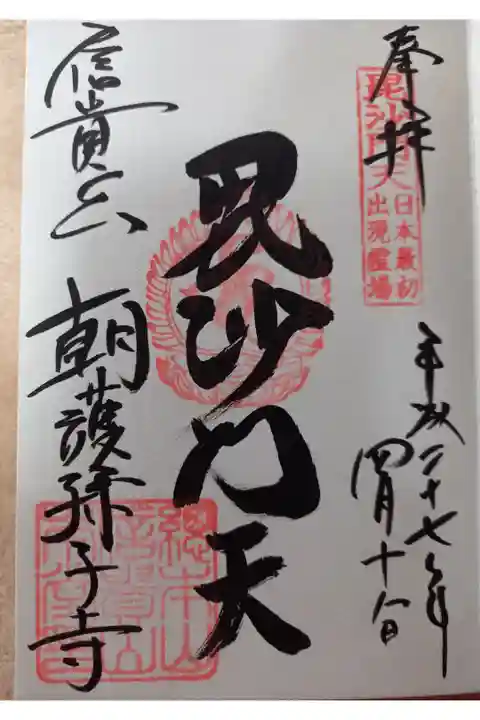 奉拝
毘沙門天
日本最初
出現霊場
平成二十七年
四月十八日
毘沙門天
信貴山
朝護孫子寺
總本山